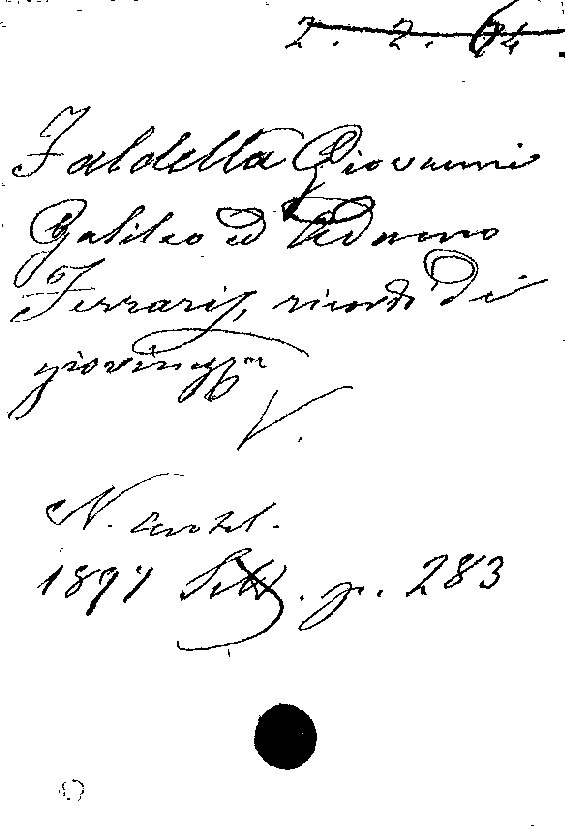 2. 2. 84.
Faldella Giovanni
Galileo ed Adamo
Ferraris, ricordi di
giovinezza
V.
N. Antol.
1897 Sett. p. 283